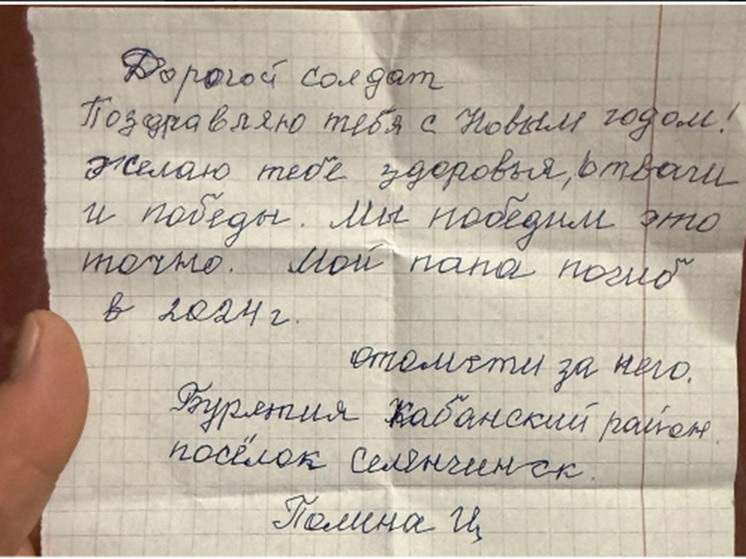 Дорогой солдат
Поздравляю тебя с Новым годом!
Желаю тебе здоровья, отваги
и победы. Мы победим это
точно. Мой папа погиб
в 2024 г.
отомсти за него.
Бурятия Кабанский район.
посёлок Селенгинск.
Полина Ц